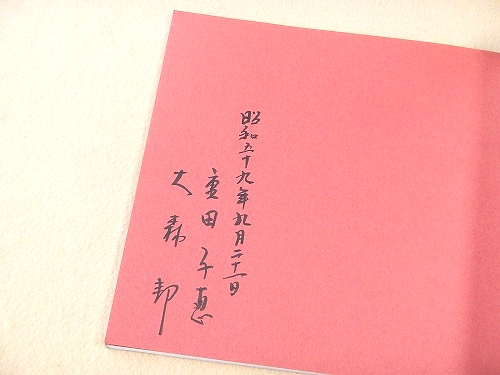 昭和五十九年九月二十一日
重田千恵
大森邦